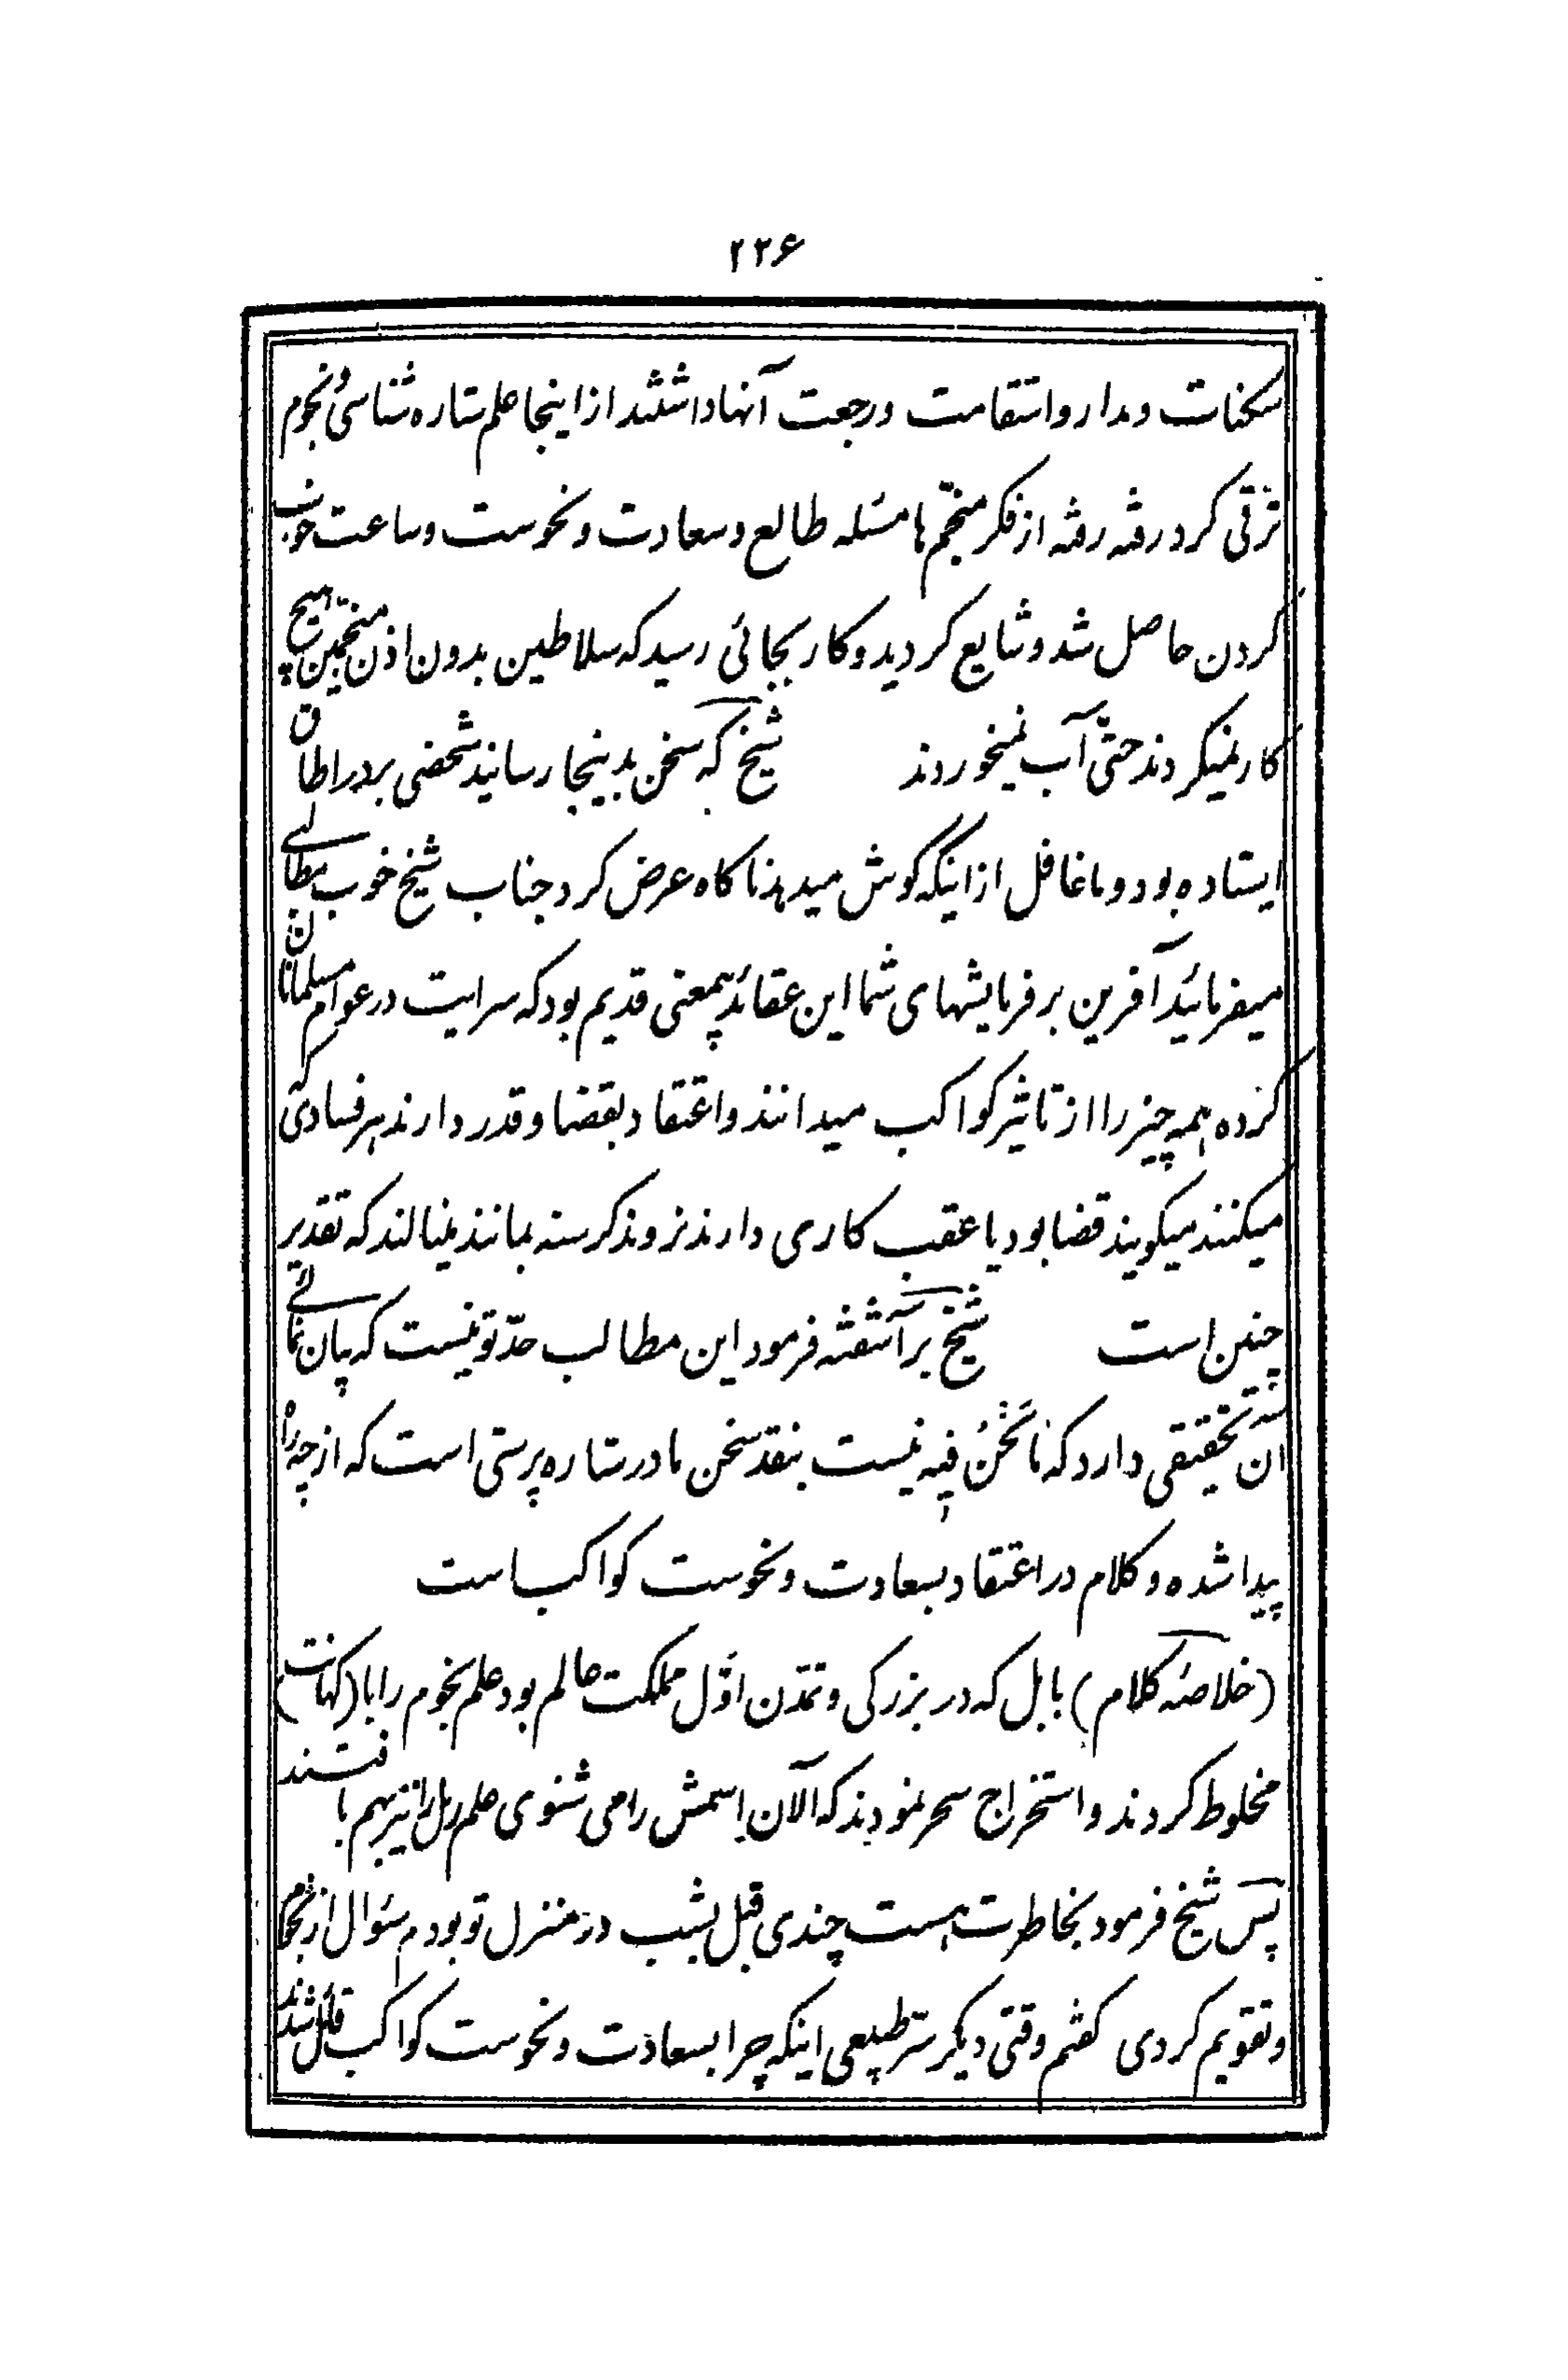 ۲۲۶
سکنات و مدار و استقامت و رجعت آنها داشتند از اینجا علم ستاره شناسی و نجوم
ترقی کرد رفته رفته از فکر منجّم ها مسئله طالع و سعادت و نحوست و ساعت خوب
کردن حاصل شد و شایع کردید و کار بجائی رسید که سلاطین بدون اذن منجّمین هیچ
کار نمیکردند حتّی آب نمیخوردند شیخ که سخن بدینجا رسانید شخصی بر در اطاق
ایستاده بود و ما غافل از اینکه گوش میدهد ناکاه عرض کرد جناب شیخ خوب مطالبی
میفرمائید آفرین بر فرمایشهای شما این عقائد بیمعنی قدیم بود که سرایت در عوام مسلمانان
کرده همه چیز را از تاثیر کواکب میدانند و اعتقاد بقضا و قدر دارند هر فسادی که
میکنند میکویند قضا بود یا عقب کاری دارند نروند کرسنه بمانند بنالند که تقدیر
چنین است شیخ بر آشفته فرمود این مطالب حدّ تو نیست که بیان نمائی
آن تحقیقی دارد که مٰا نَحْنُ فیه نیست بنقد سخن ما در ستاره پرستی است که از چه راه
پیدا شده و کلام در اعتقاد بسعادت و نحوست کواکب است
(خلاصه کلام) بابل که در بزرکی و تمدّن اوّل مملکت عالم بود علم نجوم را با (کهانت)
مخلوط کردند و استخراج سحر نمودند که الآن اسمش را می شنوی علم رمل را نیز بهم بافتند
پس شیخ فرمود بخاطرت هست چندی قبل بشب در منزل تو بودم سئوال از نجوم
و تقویم کردی کفتم وقتی دیکر سرّ طبیعی اینکه چرا بسعادت و نحوست کواکب قائل شدند